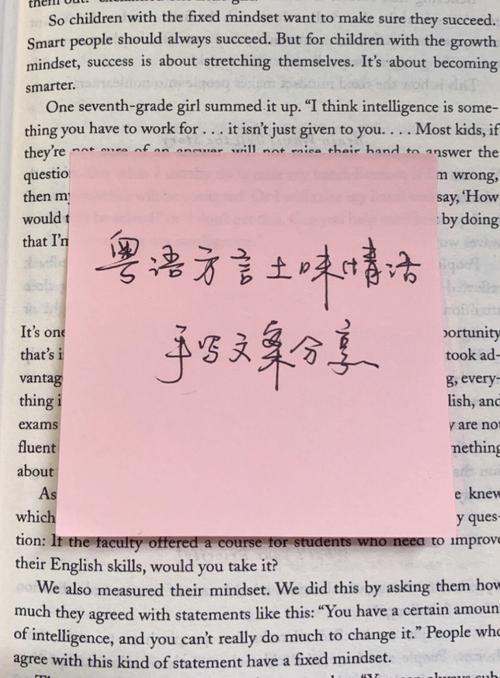 So children with the fixed mindset want to make sure they succeed.
Smart people should always succeed. But for children with the growth
mindset, success is about stretching themselves. It's about becoming
smarter.
One seventh-grade girl summed it up. "I think intelligence is some-
thing you have to work for . . . it isn't just given to you. . . . Most kids, if
they're not sure of an answer, will not raise their hand to answer the
questio
m wrong,
then my
say, 'How
would t
by doing
that I'm
粤语方言土味情话
手写文案分享
It's one
portunity
that's i
took ad-
vantag
g, every-
thing i
lish, and
exams
y are no
fluent
mething
about
As
e knew
which
y ques-
tion: If the faculty offered a course for students who need to improve
their English skills, would you take it?
We also measured their mindset. We did this by asking them how
much they agreed with statements like this: "You have a certain amoun
of intelligence, and you can't really do much to change it." People who
agree with this kind of statement have a fixed mindset.